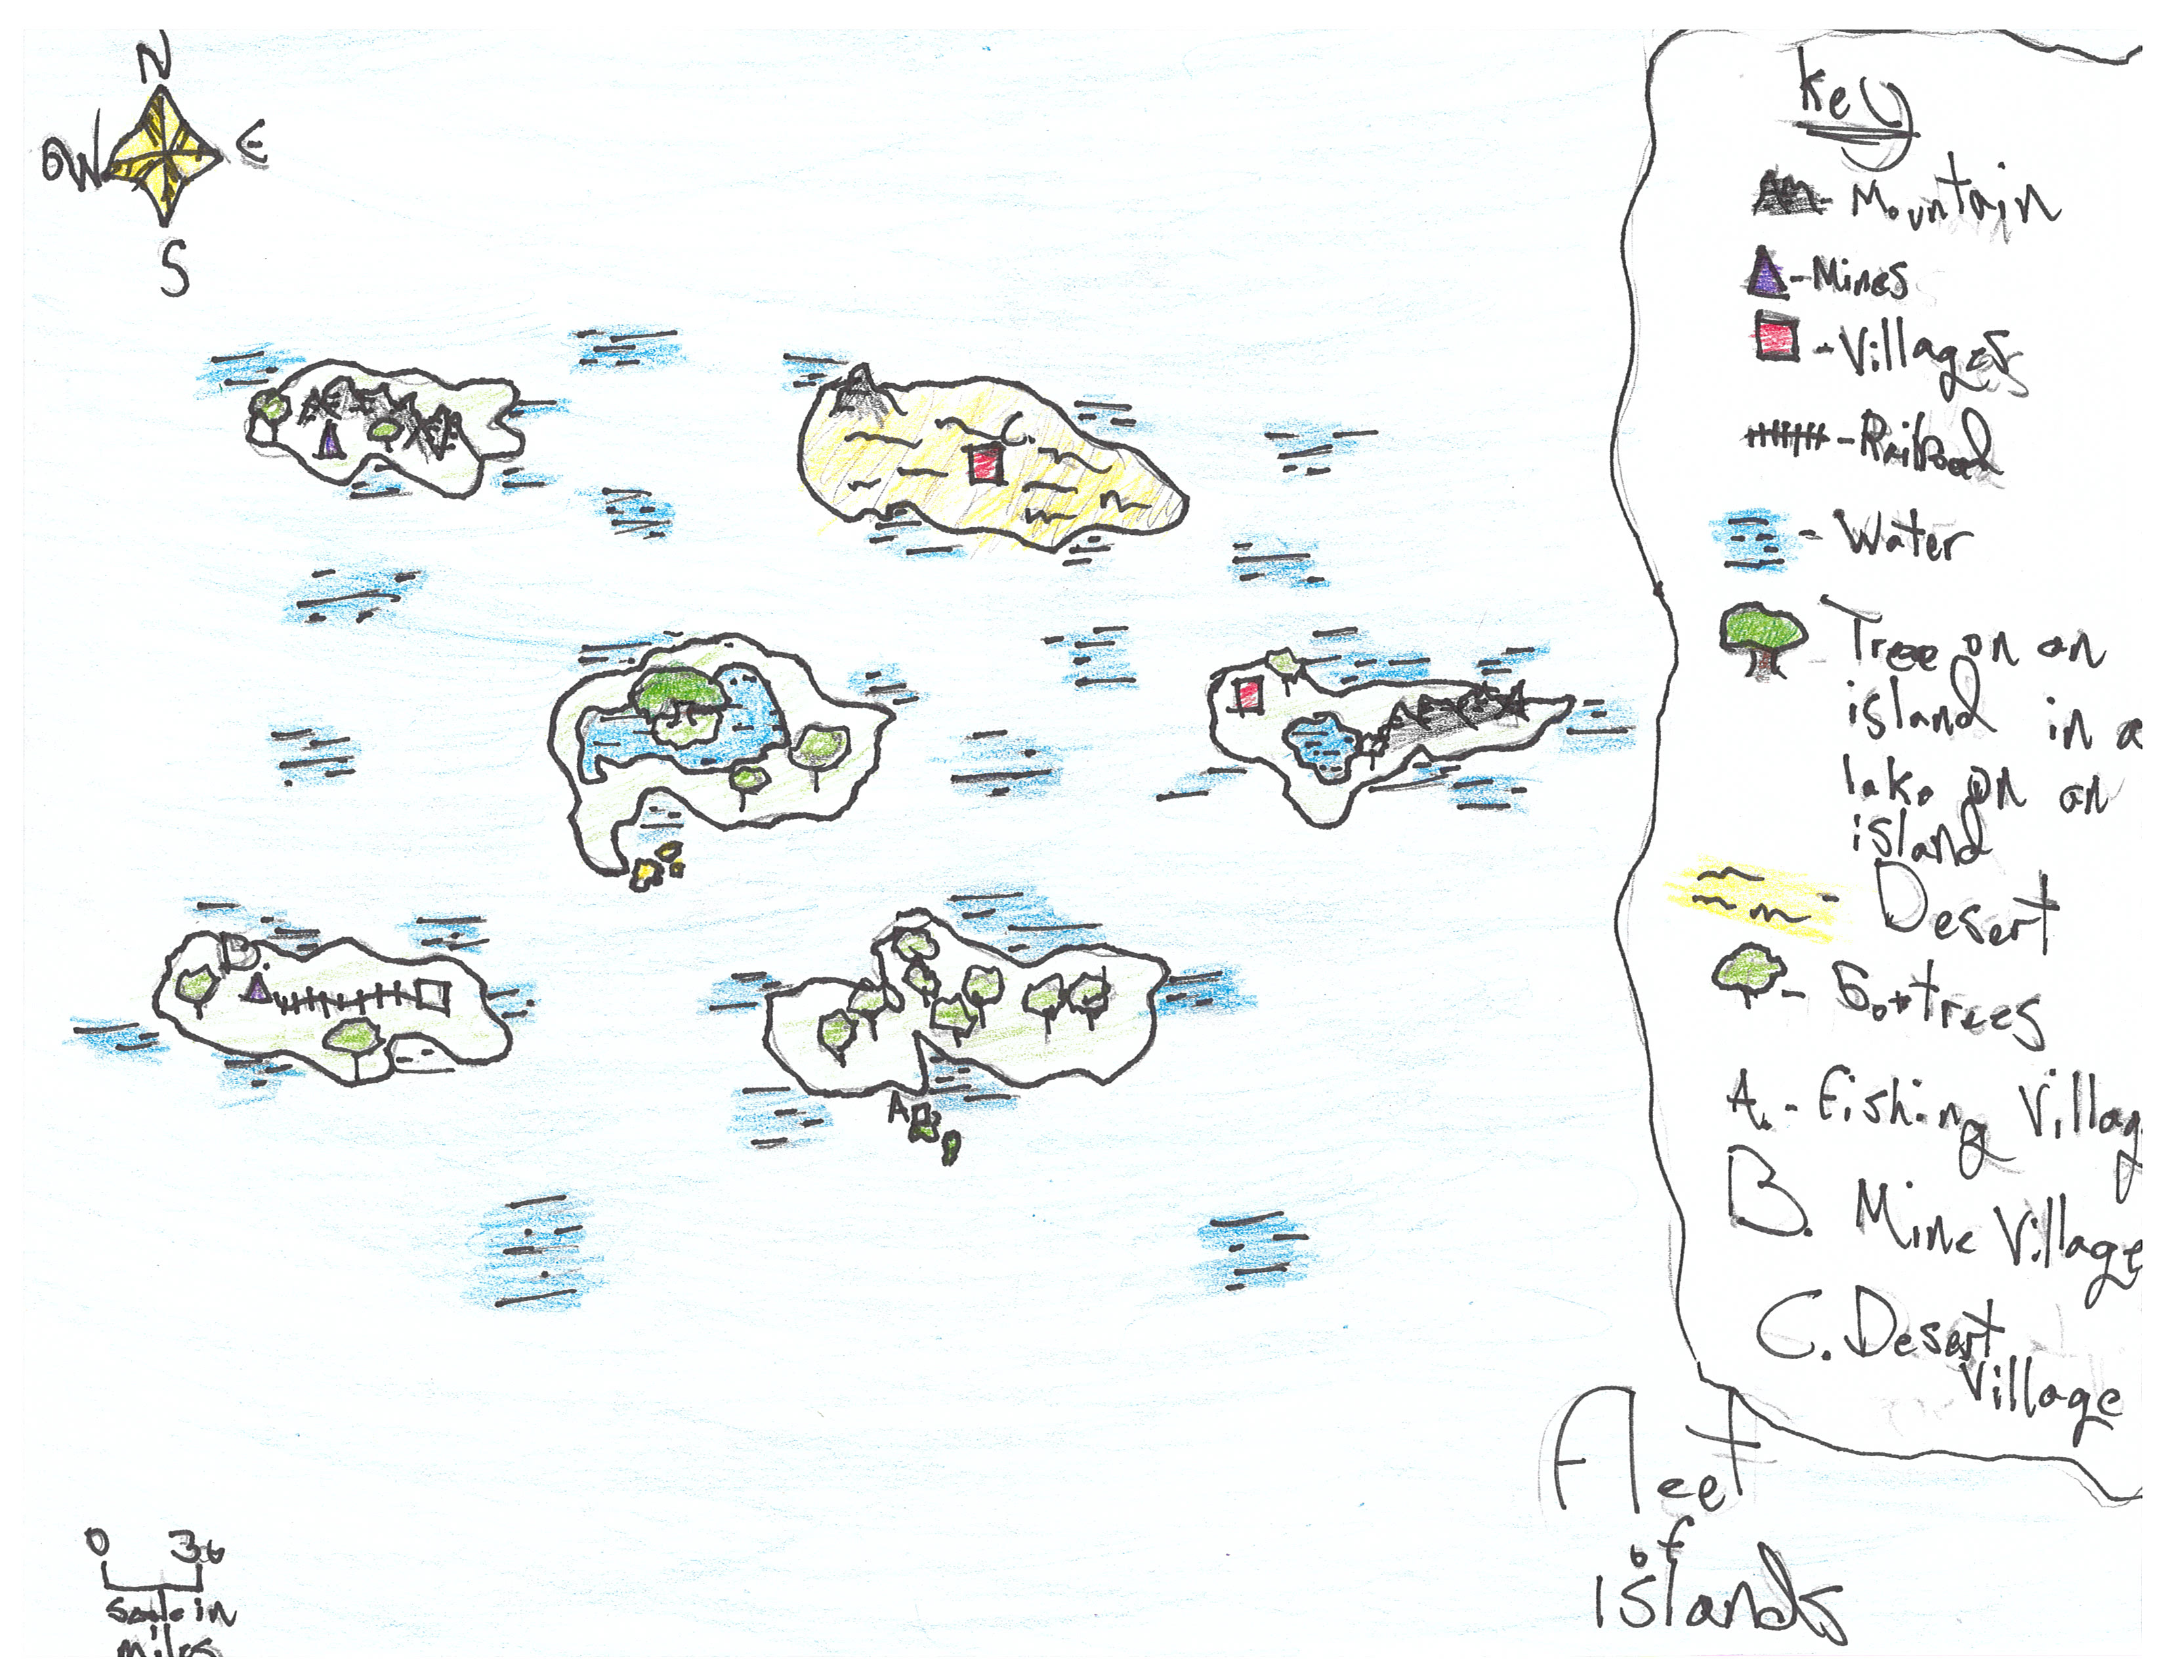 N
W
E
S
Key
- Mountain
- Mines
- Villages
- Railroad
- Water
- Tree on an
island in a
lake on an
island
- Desert
- trees
A. - Fishing Villag
B. Mine Village
C. Desert
Village
C.
B.
A
Fleet
of
islands
0 30
Scale in
miles